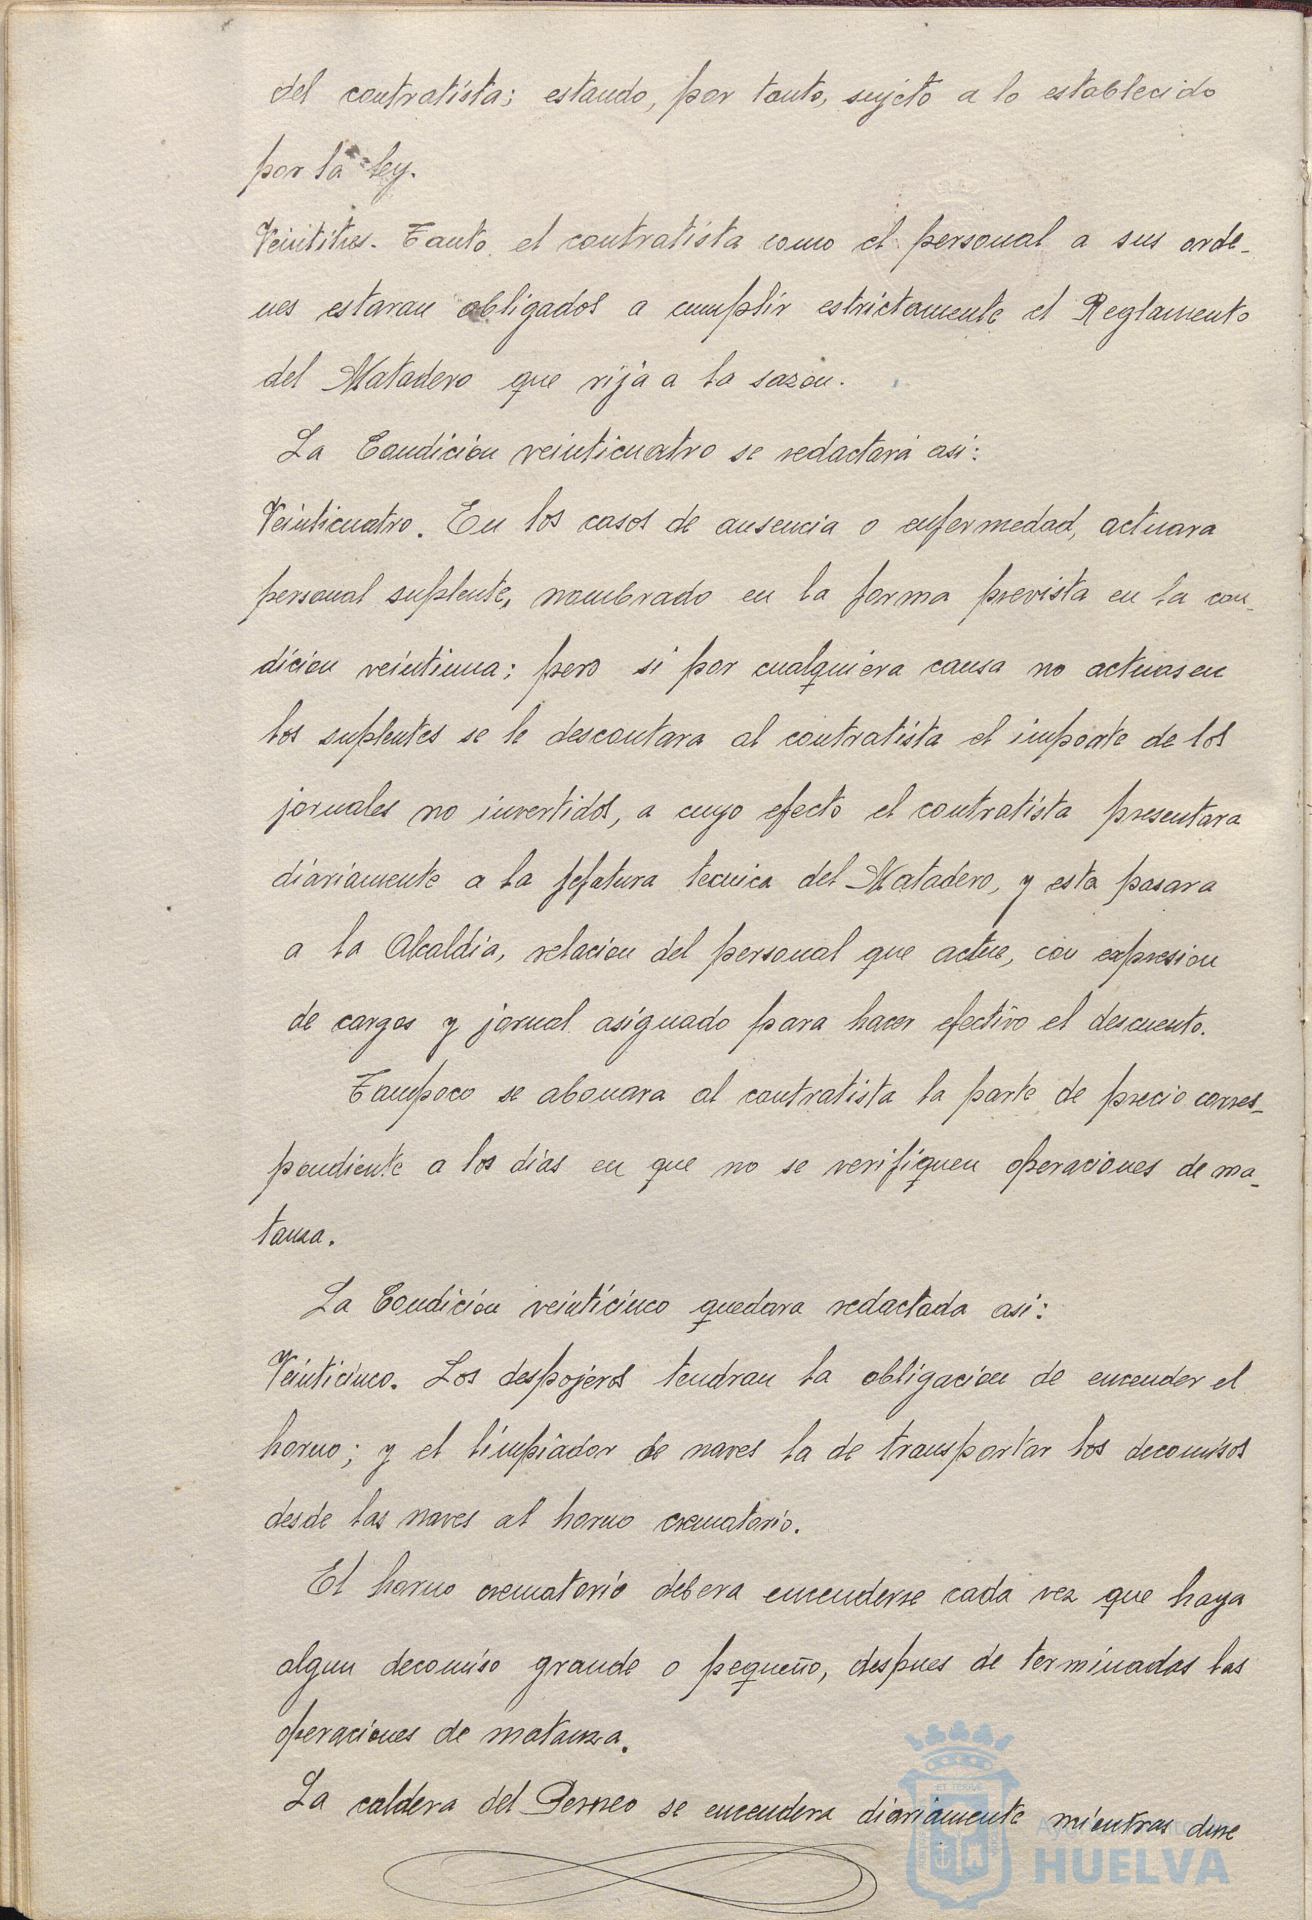 del contratista; estando, por tanto, sujeto a lo establecido
por la ley.
Veintitres. Tanto el contratista como el personal a sus orde-
nes estaran obligados a cumplir estrictamente el Reglamento
del Matadero que rija a la sazon.
La Condición veinticuatro se redactará asi:
Veinticuatro. En los casos de ausencia o enfermedad, actuara
personal suplente, nombrado en la forma prevista en la con-
dicion veintiuna; pero si por cualquiera causa no actuasen
los suplentes se le descontara al contratista el importe de los
jornales no invertidos, a cuyo efecto el contratista presentara
diariamente a la jefatura tecnica del Matadero, y esta pasara
a la Alcaldia, relacion del personal que actue, con expresion
de cargos y jornal asignado para hacer efectivo el descuento.
Tampoco se abonara al contratista la parte de precio corres-
pondiente a los dias en que no se verifiquen operaciones de ma-
tanza.
La Condición veinticinco quedara redactada asi:
Veinticinco. Los despojeros tendran la obligación de encender el
horno; y el limpiador de naves la de transportar los decomisos
desde las naves al horno crematorio.
El horno crematorio debera encenderse cada vez que haya
algun decomiso grande o pequeño, despues de terminadas las
operaciones de matanza.
La caldera del Perneo se encendera diariamente mientras dure
ET TERRÆ
HUELVA